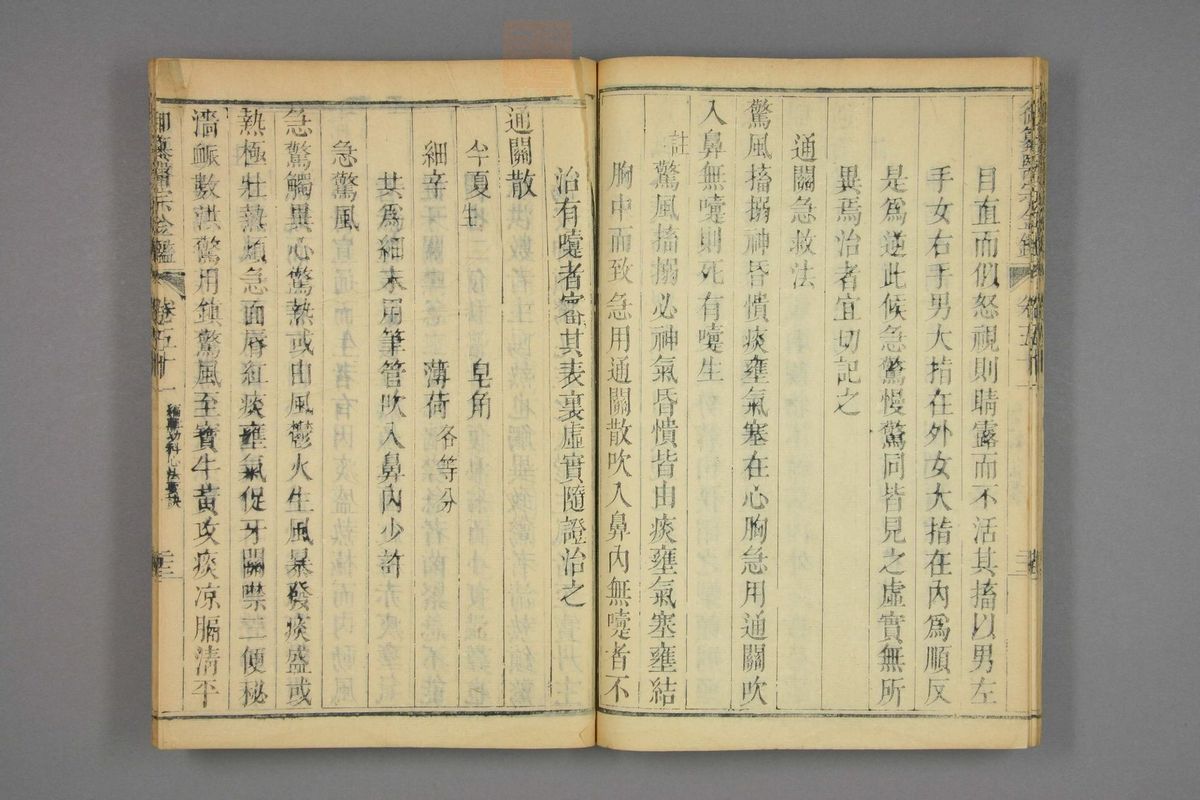 目直而似怒視則睛露而不活其搐以男左
手女右手男大指在外女大指在內爲順反
是爲逆此候急驚慢驚同皆見之虛實無所
異焉治者宜切記之
通關急救法
驚風搐搦神昏憒痰壅氣塞在心胸急用通關吹
入鼻無嚏則死有嚏生
註
驚風搐搦必神氣昏憒皆由痰壅氣塞壅結
胸中而致急用通關散吹入鼻內無嚏者不
治有嚏者審其表裏虛實隨證治之
通關散
半夏生 皂角
細辛 薄荷各等分
共爲細末用筆管吹入鼻內少許
急驚風
急驚觸異心驚熱或由風鬱火生風暴發痰盛或
熱極壯熱煩急面唇紅痰壅氣促牙關噤二便秘
濇脈數洪驚用鎮驚風至寶牛黃攻痰凉膈清平
御纂醫宗金鑑 卷五十一 編輯幼科心法要訣
御纂醫宗金鑑 卷五十一